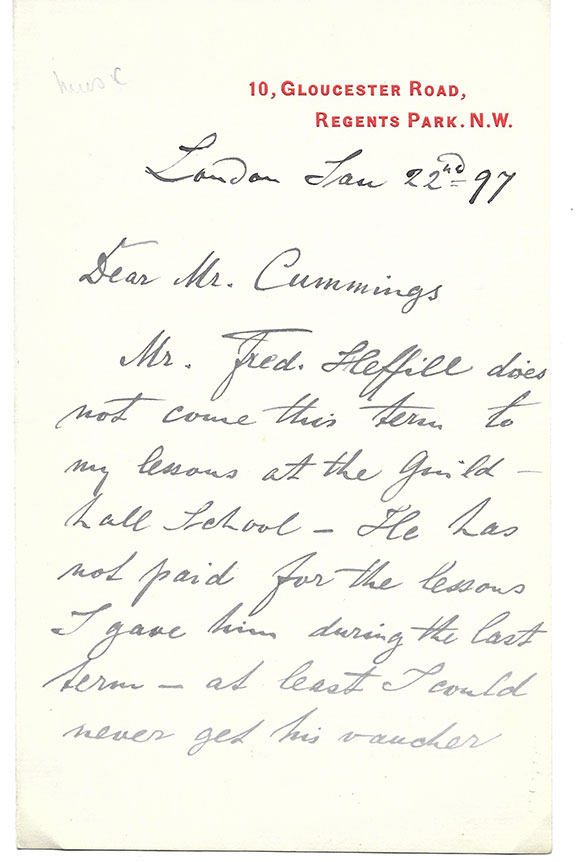 music
10, GLOUCESTER ROAD,
REGENTS PARK. N.W.
London Jan 22nd 97
Dear Mr. Cummings
Mr. Fred. Heffill does
not come this term to
my lessons at the Guild-
hall School – He has
not paid for the lessons
I gave him during the last
term – at least I could
never get his voucher